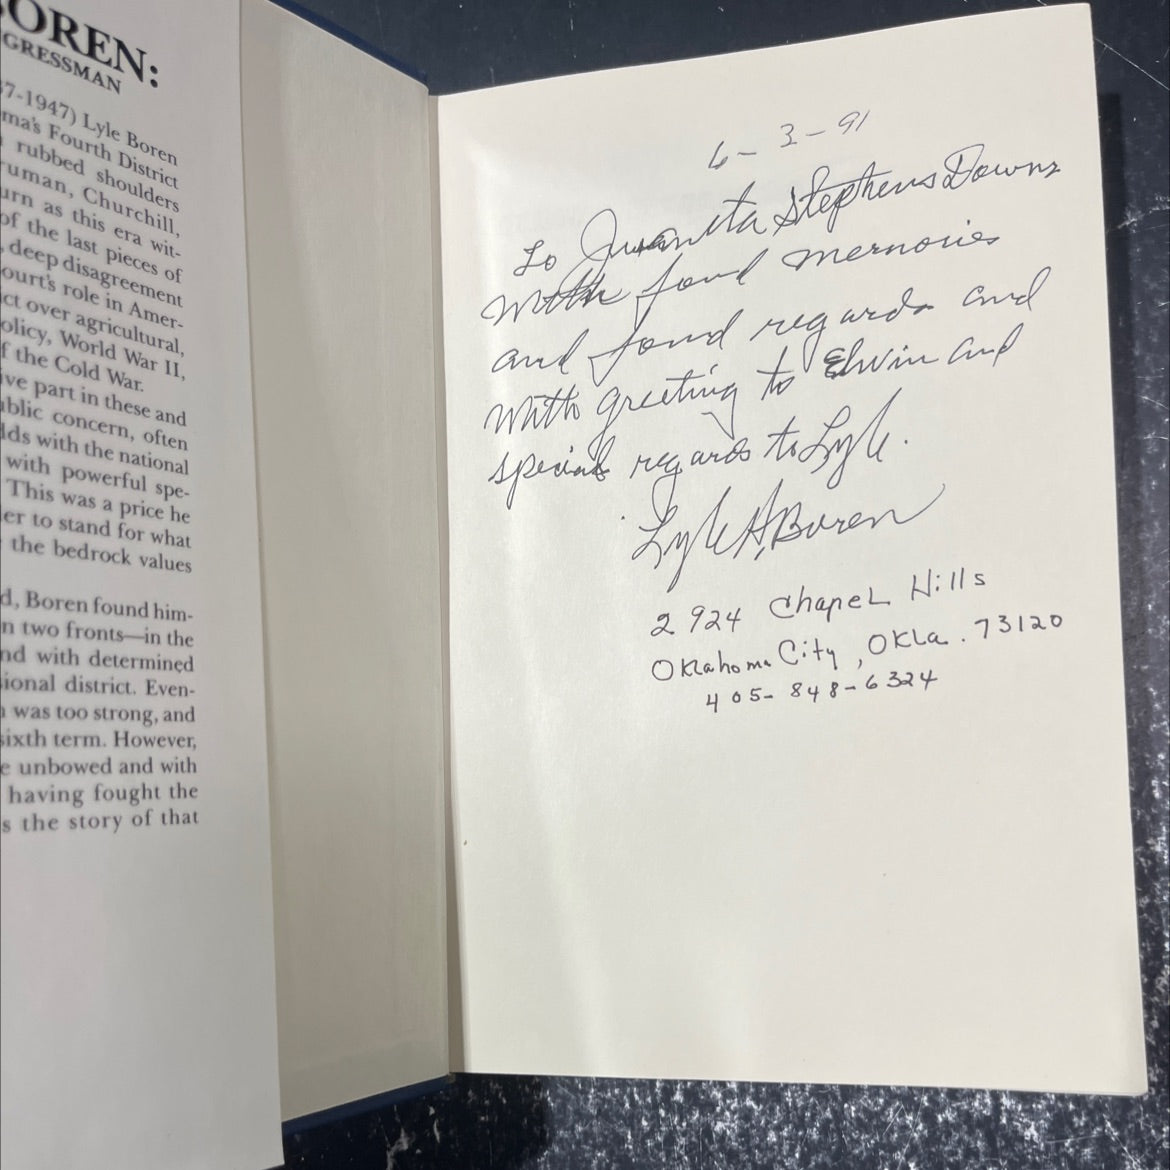 BOREN:
GRESSMAN
37-1947) Lyle Boren
ma's Fourth District
rubbed shoulders
ruman, Churchill,
urn as this era wit-
of the last pieces of
, deep disagreement
ourt's role in Amer-
ct over agricultural,
olicy, World War II,
f the Cold War.
ive part in these and
ublic concern, often
dds with the national
with powerful spe-
This was a price he
er to stand for what
the bedrock values
d, Boren found him-
n two fronts—in the
nd with determined
sional district. Even-
n was too strong, and
sixth term. However,
e unbowed and with
having fought the
s the story of that
6-3-91
To Juanita Stephens Downs
With fond memories
and fond regards and
with greeting to Elwin and
special regards to Lyle.
Lyle H. Boren
2924 Chapel Hills
Oklahoma City, Okla. 73120
405-848-6324